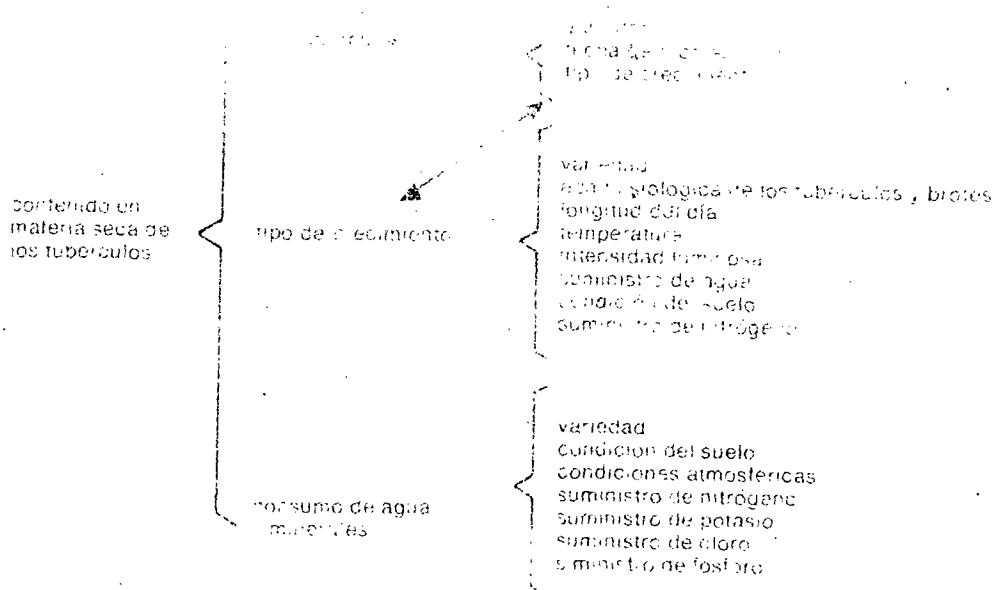 contenido en
materia seca de
los tubérculos
tipo de crecimiento
tipo de crecimiento
variedad
edad fisiológica de los tubérculos y brotes
longitud del día
temperatura
intensidad luminosa
suministro de agua
condición del suelo
suministro de nitrógeno
consumo de agua
minerales
variedad
condición del suelo
condiciones atmosféricas
suministro de nitrógeno
suministro de potasio
suministro de cloro
suministro de fósforo